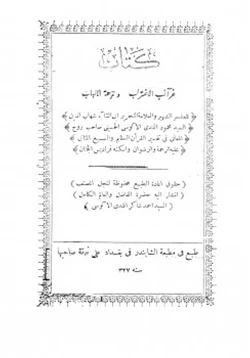 كتاب
غرائب الاغتراب ونزهة الالباب
للمفسر الشهير والعلامة النحرير ابى الثناء شهاب الدين
السيد محمود افندى الآلوسى الحسينى صاحب روح
المعانى فى تفسير القرآن العظيم والسبع المثانى
عليه الرحمة والرضوان واسكنه فراديس الجنان
حقوق اعادة الطبع محفوظة لنجل المصنف
المشار اليه حضرة الفاضل والعالم الكامل
السيد احمد شاكر افندى الآلوسى
طبع فى مطبعة الشابندر فى بغداد على نفقة صاحبها
سنه ١٣٢٧